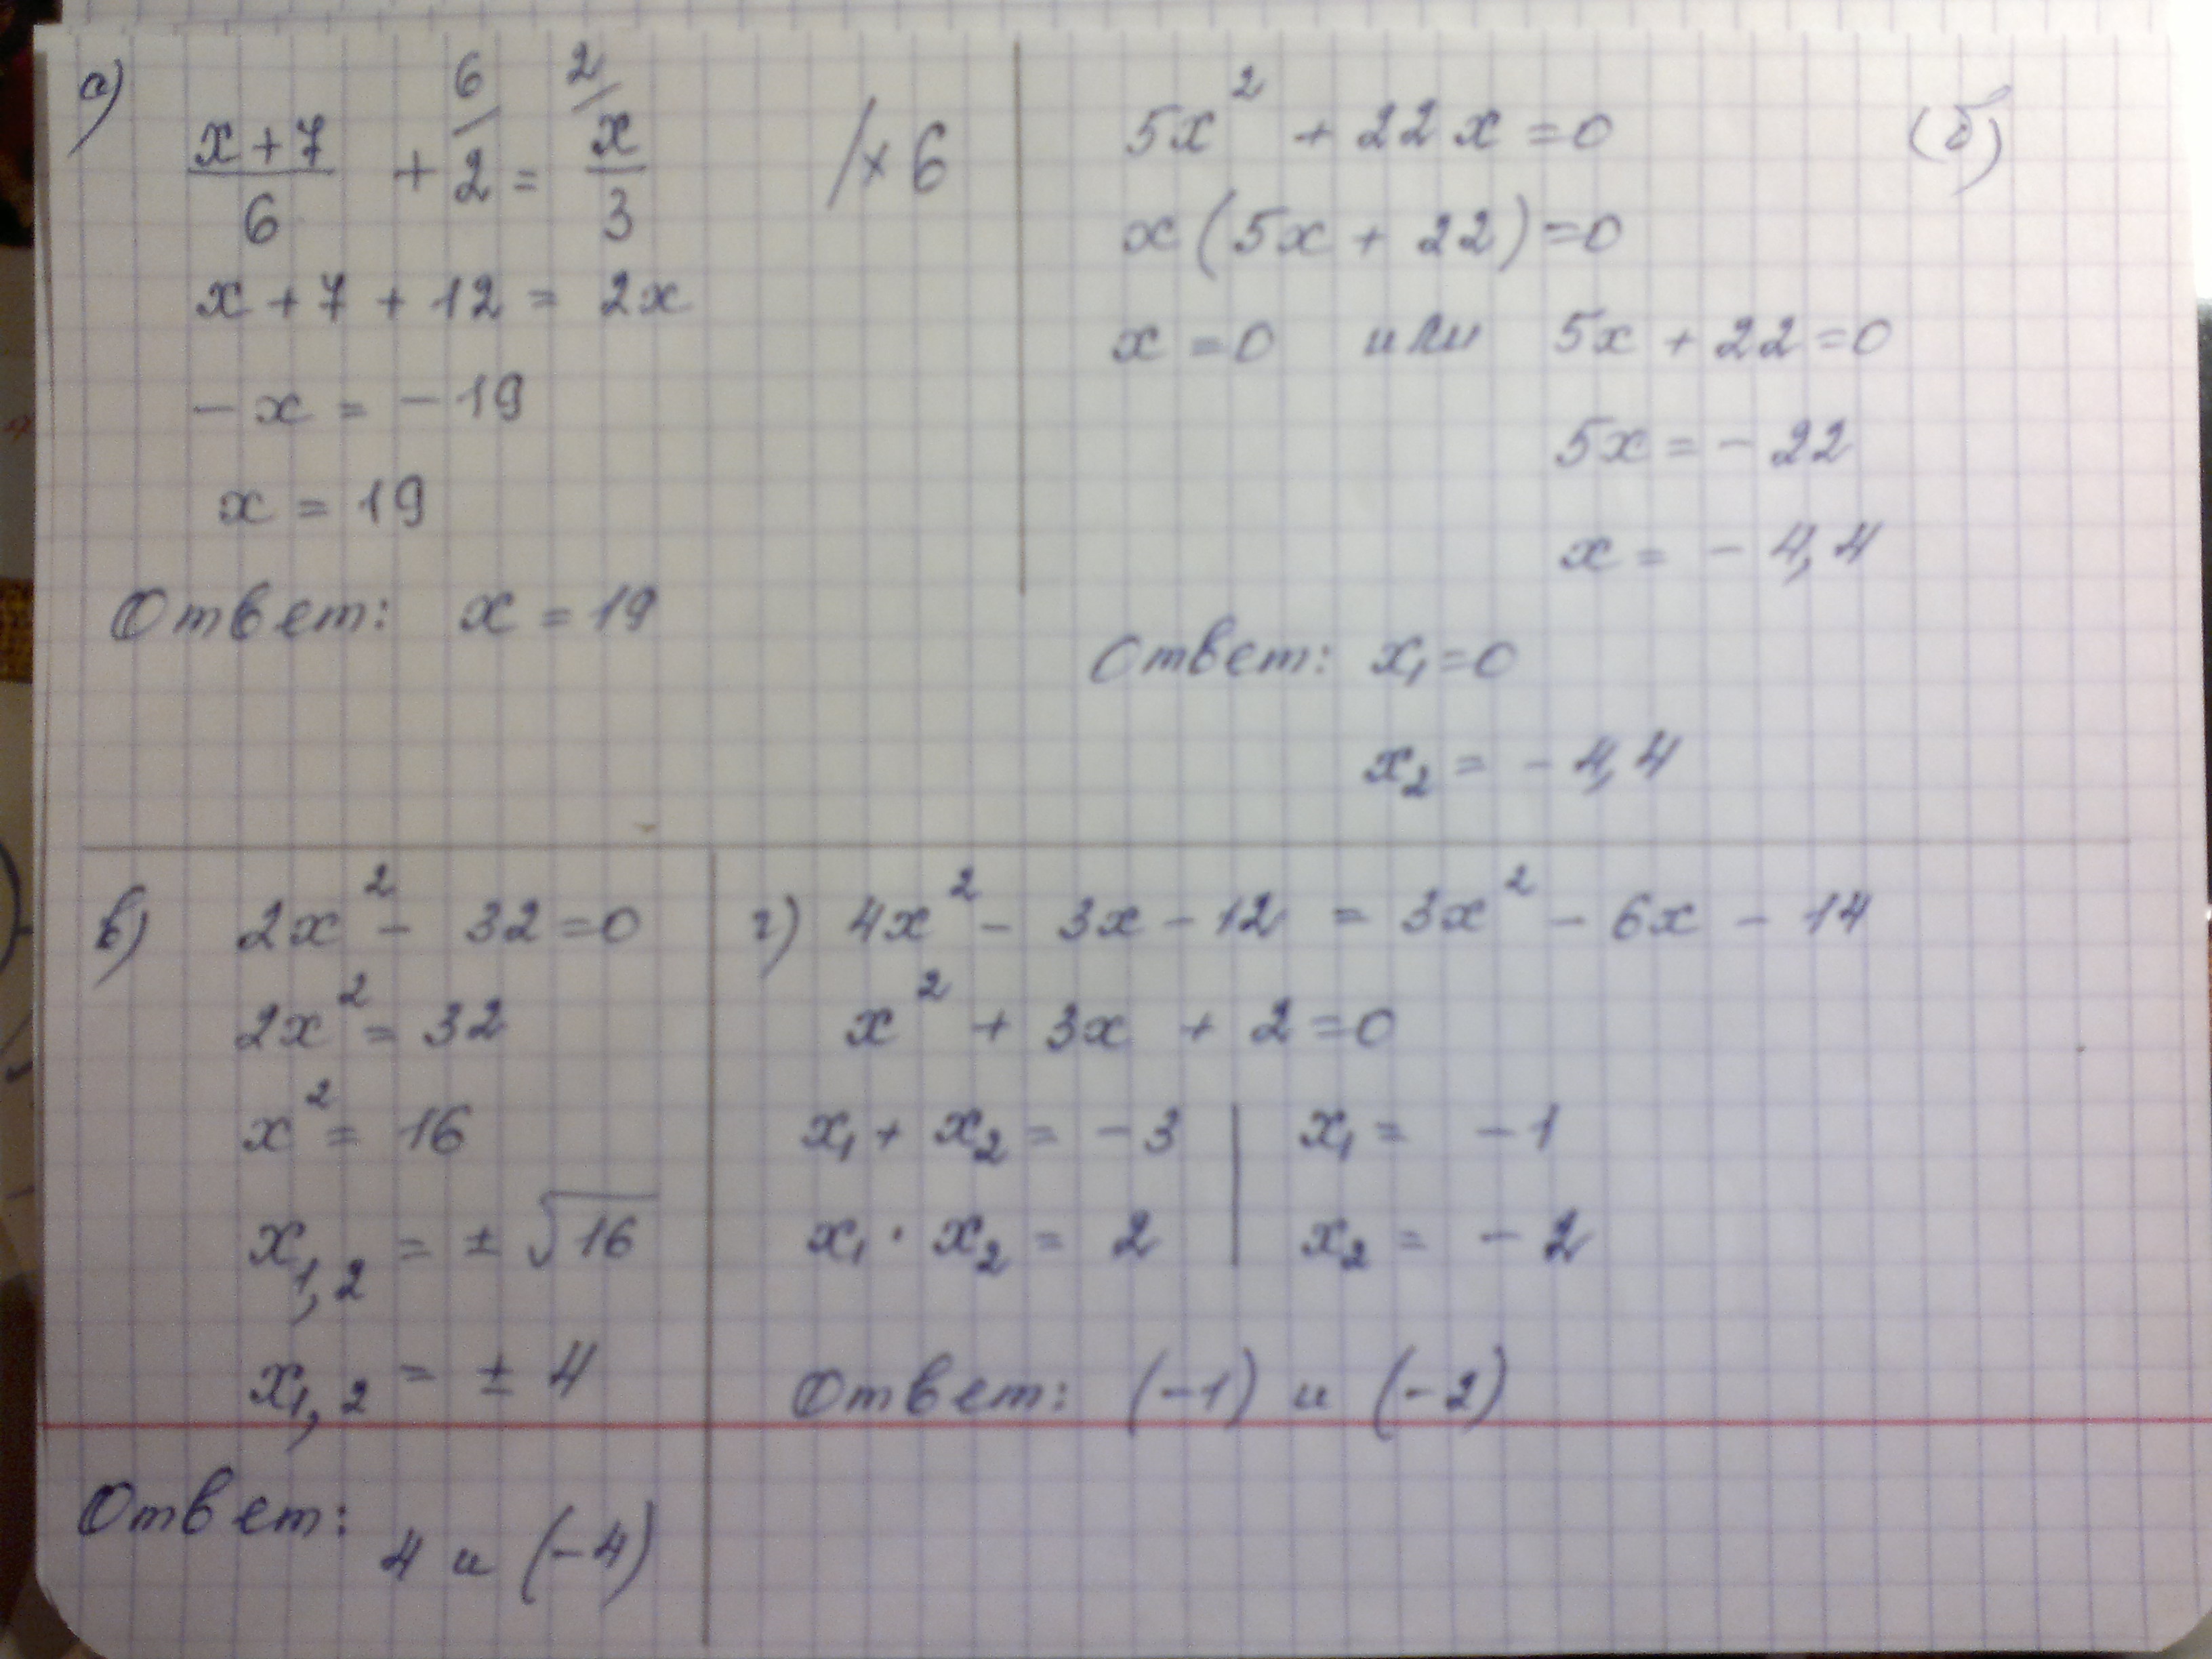 а)
6/ 2/
(x+7)/6 + 2 = x/3 /×6
x + 7 + 12 = 2x
-x = -19
x = 19
Ответ: x = 19
5x² + 22x = 0 (б)
x(5x + 22) = 0
x = 0 или 5x + 22 = 0
5x = -22
x = -4,4
Ответ: x₁ = 0
x₂ = -4,4
в) 2x² - 32 = 0
2x² = 32
x² = 16
x₁,₂ = ± √16
x₁,₂ = ± 4
Ответ:
4 и (-4)
г) 4x² - 3x - 12 = 3x² - 6x - 14
x² + 3x + 2 = 0
x₁ + x₂ = -3 | x₁ = -1
x₁ · x₂ = 2 | x₂ = -2
Ответ: (-1) и (-2)